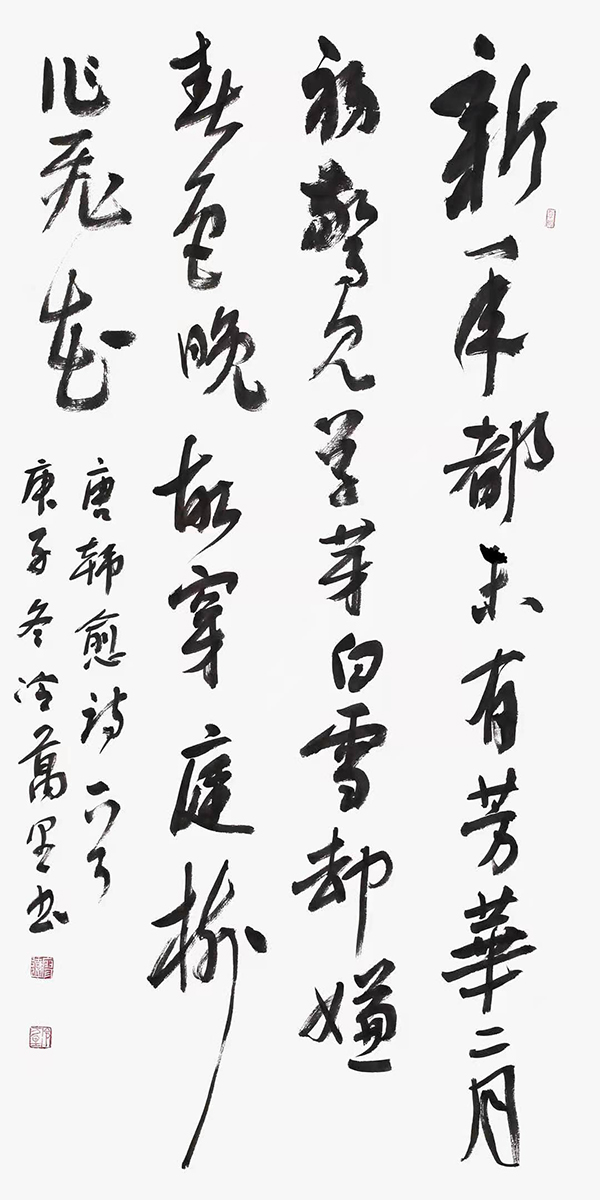 新年都未有芳華二月
初驚見草芽白雪却嫌
春色晚故穿庭樹
作飛花
唐韓愈詩一首
庚子冬冷萬里書